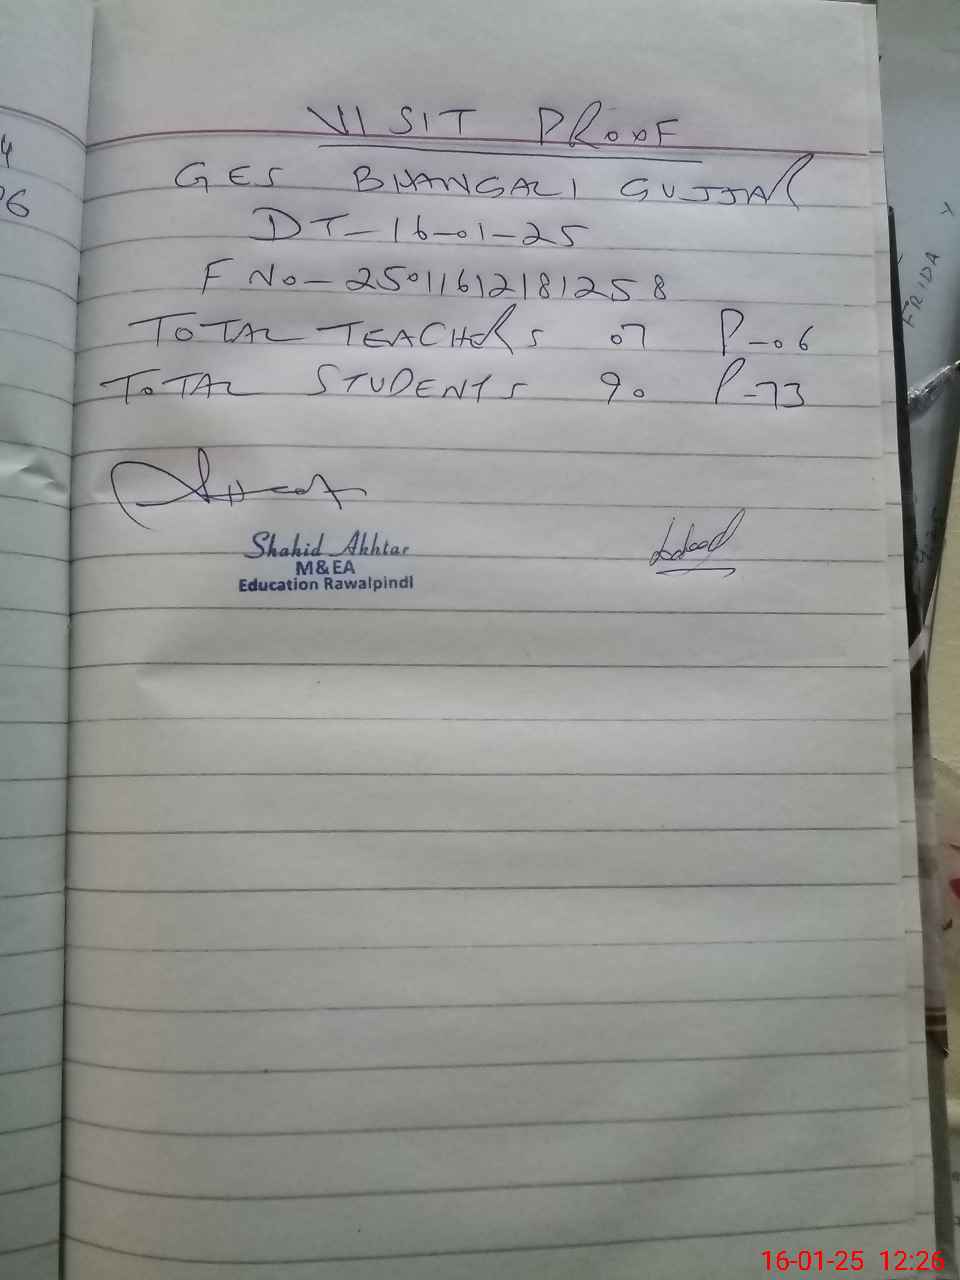 4
06
VISIT PROOF
GES BHANGALI GUJJAR
DT-16-01-25
F No-25011612181258
TOTAL TEACHERS 07 P-06
TOTAL STUDENTS 90 P-73
Shahid Akhtar
M&EA
Education Rawalpindi
FRIDAY
16-01-25 12:26